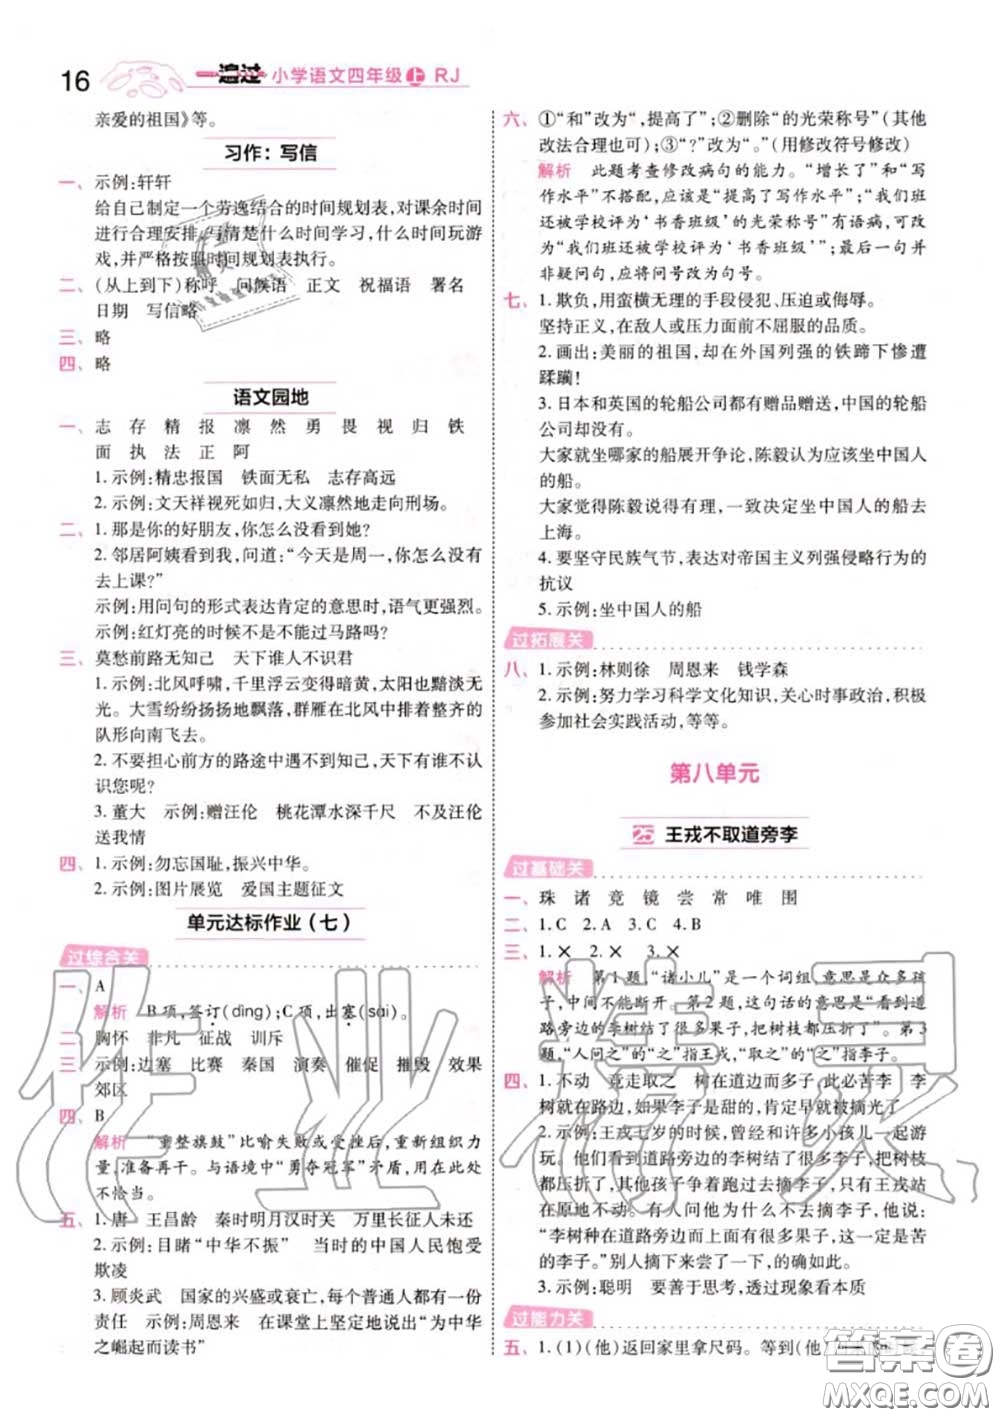 16 一遍过 小学语文四年级上 RJ
亲爱的祖国》等。
习作：写信
一、示例:轩轩
给自己制定一个劳逸结合的时间规划表,对课余时间
进行合理安排,写清楚什么时间学习,什么时间玩游
戏,并严格按照时间规划表执行。
二、(从上到下)称呼 问候语 正文 祝福语 署名
日期 写信略
三、略
四、略
语文园地
一、志 存 精 报 凛 然 勇 畏 视 归 铁
面 执 法 正 阿
1.示例:精忠报国 铁面无私 志存高远
2.示例:文天祥视死如归,大义凛然地走向刑场。
二、1.那是你的好朋友,你怎么没看到她?
2.邻居阿姨看到我,问道:“今天是周一,你怎么没有
去上课?”
示例:用问句的形式表达肯定的意思时,语气更强烈。
示例:红灯亮的时候不是不能过马路吗?
三、莫愁前路无知己 天下谁人不识君
1.示例:北风呼啸,千里浮云变得暗黄,太阳也黯淡无
光。大雪纷纷扬扬地飘落,群雁在北风中排着整齐的
队形向南飞去。
2.不要担心前方的路途中遇不到知己,天下谁不认
识您呢?
3.董大 示例:赠汪伦 桃花潭水深千尺 不及汪伦
送我情
四、1.示例:勿忘国耻,振兴中华。
2.示例:图片展览 爱国主题征文
单元达标作业（七）
过综合关
一、A
解析 B项,签订(dìng);C项,出塞(sài)。
二、胸怀 非凡 征战 训斥
三、示例:边塞 比赛 秦国 演奏 催促 摧毁 效果
郊区
四、B
解析 “重整旗鼓”比喻失败或受挫后,重新组织力
量,准备再干。与语境中“勇夺冠军”矛盾,故在此处
不恰当。
五、1.唐 王昌龄 秦时明月汉时关 万里长征人未还
2.示例:目睹“中华不振” 当时的中国人民饱受
欺凌
3.顾炎武 国家的兴盛或衰亡,每个普通人都有一份
责任 示例:周恩来 在课堂上坚定地说出“为中华
之崛起而读书”
六、①“和”改为“,提高了”;②删除“的光荣称号”(其他
改法合理也可);③“?”改为“。”(用修改符号修改)
解析 此题考查修改病句的能力。“增长了”和“写
作水平”不搭配,应该是“提高了写作水平”;“我们班
还被学校评为‘书香班级’的光荣称号”有语病,可改
为“我们班还被学校评为‘书香班级’”;最后一句并
非疑问句,应将问号改为句号。
七、1.欺负,用蛮横无理的手段侵犯、压迫或侮辱。
坚持正义,在敌人或压力面前不屈服的品质。
2.画出:美丽的祖国,却在外国列强的铁蹄下惨遭
蹂躏!
3.日本和英国的轮船公司都有赠品赠送,中国的轮船
公司却没有。
大家就坐哪家的船展开争论,陈毅认为应该坐中国人
的船。
大家觉得陈毅说得有理,一致决定坐中国人的船去
上海。
4.要坚守民族气节,表达对帝国主义列强侵略行为的
抗议
5.示例:坐中国人的船
过拓展关
八、1.示例:林则徐 周恩来 钱学森
2.示例:努力学习科学文化知识,关心时事政治,积极
参加社会实践活动,等等。
第八单元
25 王戎不取道旁李
过基础关
一、珠 诸 竞 镜 尝 常 唯 围
二、1.C 2.A 3.C
三、1.× 2.× 3.×
解析 第1题,“诸小儿”是一个词组,意思是众多孩
子,中间不能断开。第2题,这句话的意思是“看到道
路旁边的李树结了很多果子,把树枝都压折了”。第3
题,“人问之”的“之”指王戎,“取之”的“之”指李子。
四、1.不动 竞走取之 树在道边而多子,此必苦李 李
树就在路边,如果李子是甜的,肯定早就被摘光了
2.示例:王戎七岁的时候,曾经和许多小孩儿一起游
玩。他们看到道路旁边的李树结了很多果子,把树枝
都压折了,其他孩子都跑过去摘李子,只有王戎站
在原地不动。有人问他为什么不去摘李子,他说:
“李树种在道路旁边而且有这么多果子,这一定是苦
的李子。”别人摘下来尝了一下,的确如此。
3.示例:聪明 要善于思考,透过现象看本质
过能力关
五、1.(1)(他)返回家里拿尺码。等到(他)
作业精灵
答案卷
MXQE.COM